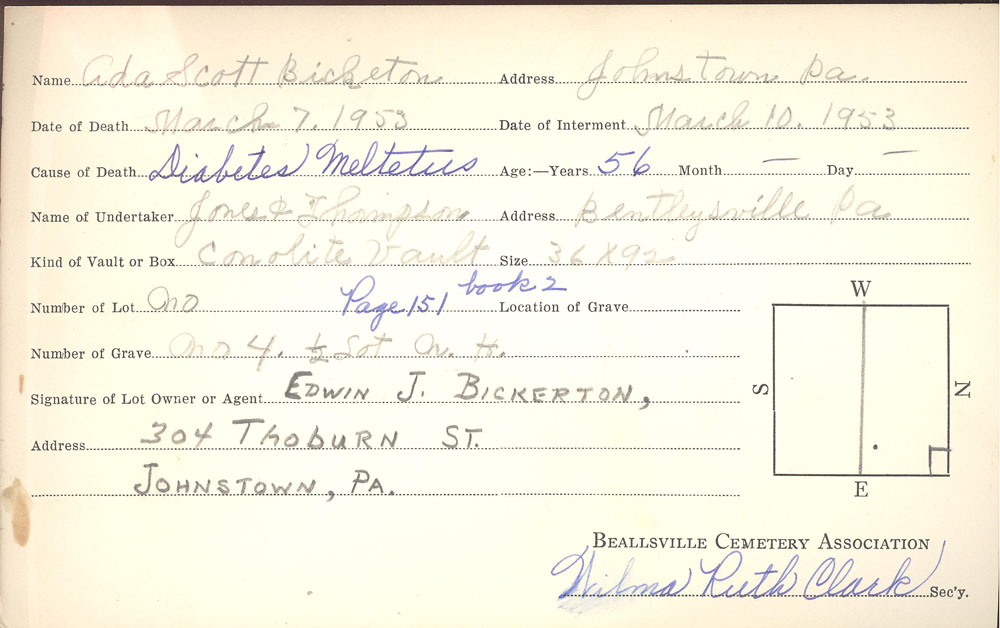 Name Ada Scott Bicketon Address Johnstown Pa.
Date of Death March 7, 1953 Date of Interment March 10. 1953
Cause of Death Diabetes Meltetus Age:—Years 56 Month — Day —
Name of Undertaker Jones & Thompson Address Bentleysville Pa
Kind of Vault or Box Conolite Vault Size 36 X 92
Number of Lot no Page 151 book 2 Location of Grave
Number of Grave no 4. ½ Lot N. H.
Signature of Lot Owner or Agent EDWIN J. BICKERTON,
Address 304 THOBURN ST.
JOHNSTOWN, PA.
W
S
N
E
BEALLSVILLE CEMETERY ASSOCIATION
Wilma Ruth Clark Sec'y.